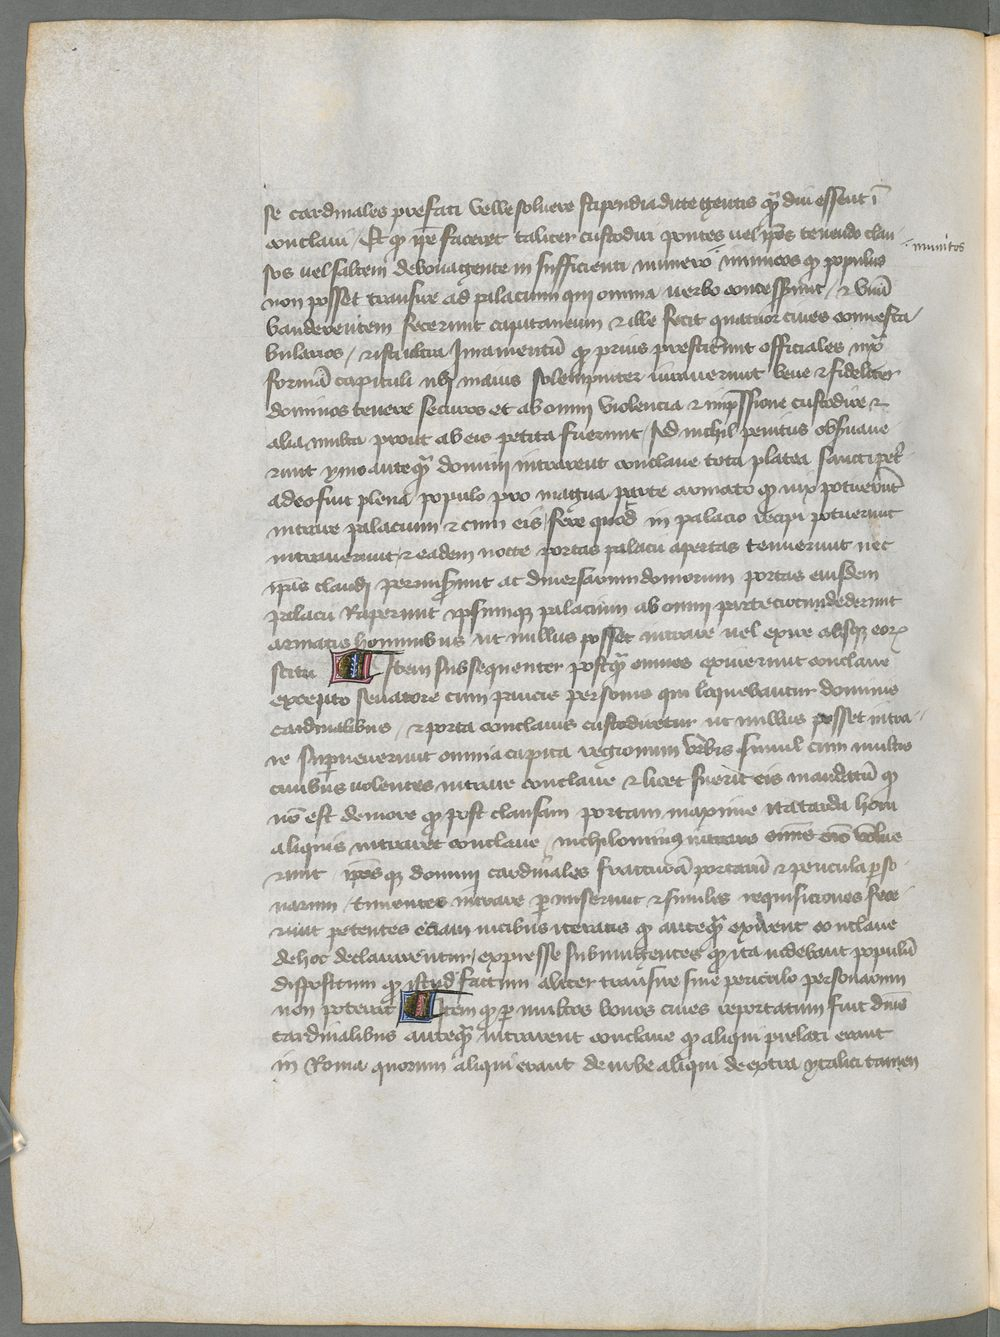 se cardinales prefati velle soluere stipendia dicte gentis qͣm diu essent ī
conclaui / Et qͥ ipē faceret taliter custodiri pontes uel ip̄os tenendo clau-
sos uel saltem de bona gente in sufficienti numero ·̇ inimicos qͥ populus
·̇ munitos
non posset transire ad palacium qui omnia uerbo concesserunt / ⁊ vnū
banderensem fecerunt capitaneum ⁊ ille fecit quatuor ciues conesta-
bularios / ⁊ isti ultra Iuramentū qͥ prius prestiterunt officiales iuxͣ
formā capituli ubi maius solempniter iurauerunt bene ⁊ fideliter
dominos tenere securos et ab omni violencia ⁊ imp̄ssione custodire ⁊
alia multa prout ab eis petita fuerunt / Ad nichil penitus obseruaue-
runt ymo anteqͣm domini intrarent conclaue tota platea sancti petͥ
adeo fuit plena populo pro magna parte armato qͥ uix potuerūt
intrare palacium ⁊ cum eis / fere quod in palacio recipi potuerunt
intrauerunt / ⁊ eadem nocte portas palacii apertas tenuerunt nec
ip̄as claudi permiserunt ac diuersarum domorum portas eiusdem
palacii Ruperunt ipsumqꝫ palacium ab omni parte circumdederunt
armatis hominibus ut nullus posset intrare uel exire absqꝫ eoꝝ
scitu Item subsequenter postqͣm omnes exiuerunt conclaue
excepto senatore cum paucis personis qui loquebantur dominis
cardinalibus / ⁊ porta conclauis custodiretur ut nullus posset intra-
re superuenerunt omnia capita regionum vrbis simul cum multis
ciuibus uolentes intrare conclaue ⁊ licet fuerit eis mandatū qͥ
nō est de more qͥ post clausam portam maxime ita tarda hora
aliquis intraret conclaue / nichilominꝰ intrare omnes volue-
runt ip̄osqꝫ domini cardinales fracturā portarū ⁊ pericula ꝑso-
narum / timentes intrare ꝑmiserunt ⁊ similes requisiciones fece-
runt petentes eciam uicibus iteratis qͥ anteqͣm exirent conclaue
de hoc declararentur / expresse subiungentes qͥ ita uidebant populū
dispositum qͥ istud factum aliter transire sine periculo personarum
non poterit Item qͥ ꝑ multos bonos ciues reportatum fuit dn̄is
cardinalibus anteqͣm intrarent conclaue qͥ aliqui prelati erant
in Roma quorum aliqui erant de urbe aliqui de extra ytalici tamen